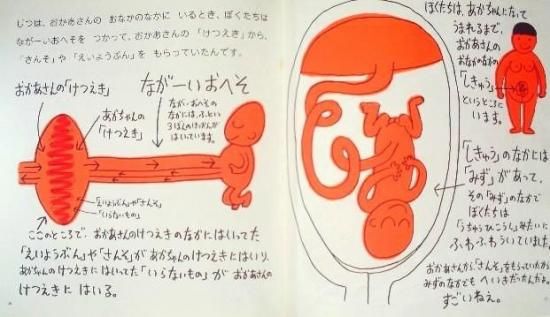 じつは、おかあさんの おなかのなかに いるとき、ぼくたちは
ながーいおへそを つかって、おかあさんの 「けつえき」から、
「さんそ」や「えいようぶん」を もらっていたんです。
おかあさんの「けつえき」
あかちゃんの
「けつえき」
ながーいおへそ
ながーいおへその
なかには、ふとい
3ぼんのけっかんが
はいっています。
「えいようぶん」や「さんそ」
「いらないもの」
ここのところで、おかあさんのけつえきのなかにはいってた
「えいようぶん」や「さんそ」が あかちゃんのけつえきにはいり、
あかちゃんのけつえきに はいってた「いらないもの」が おかあさんの
けつえきに はいる。
ぼくたちは、あかちゃんになって
うまれるまで、
おかあさんの
おなかのなかの
「しきゅう」
というところに
います。
「しきゅう」のなかには
「みず」が あって、
その「みず」のなかで
ぼくたちは
「うちゅうひこうし」みたいに
ふわふわういていました。
おかあさんから、「さんそ」をもらっていたから
みずのなかでも へいきだったんだよ。
すごいねえ。